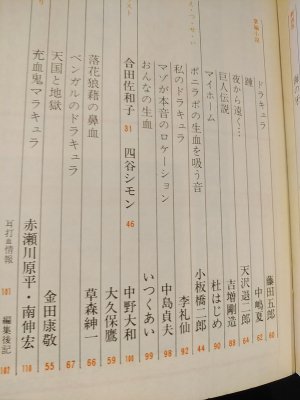 掌篇小説
ドラキュラ 藤田五郎 60
踵 中嶋夏 62
夜から遠く… 天沢退二郎 64
巨人伝説 吉増剛造 88
マイホーム 杜はじめ 90
え・っ・せ・い
ボニラボの生血を吸う音 小板橋二郎 44
私のドラキュラ 李礼仙 92
マゾが本音のロケーション 中島貞夫 98
おんなの生血 いつくあい 99
スト
合田佐和子 31 四谷シモン 46
中野大和 100
落花狼藉の鼻血 大久保鷹 59
ベンガルのドラキュラ 草森紳一 66
67
天国と地獄 金田康敬 55
充血鬼マラキュラ 赤瀬川原平・南伸宏 110
耳打血情報 101
編集後記 102